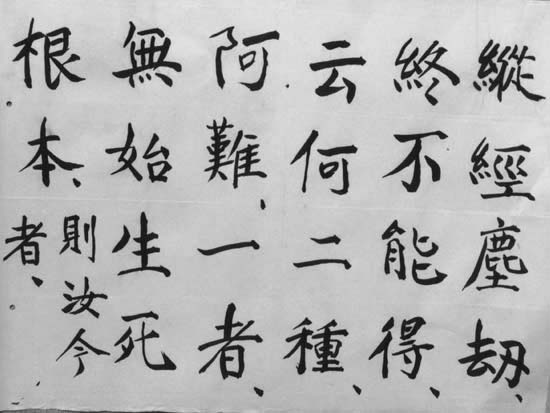 縱經塵刼、
終不能得、
云何二種、
阿難、一者、
無始生死
根本、
則汝今
者、